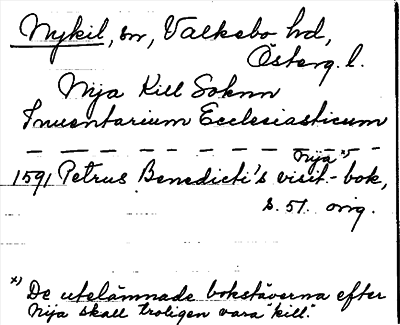 Nykil, sn, Valkebo hd,
Österg. l.
Nija Kill Soknn
Inuentarium Ecclesiasticum
Nija x)
1591 Petrus Benedicti's visit.-bok,
s. 51. orig.
x) De utelämnade bokstäverna efter
Nija skall troligen vara "kill".